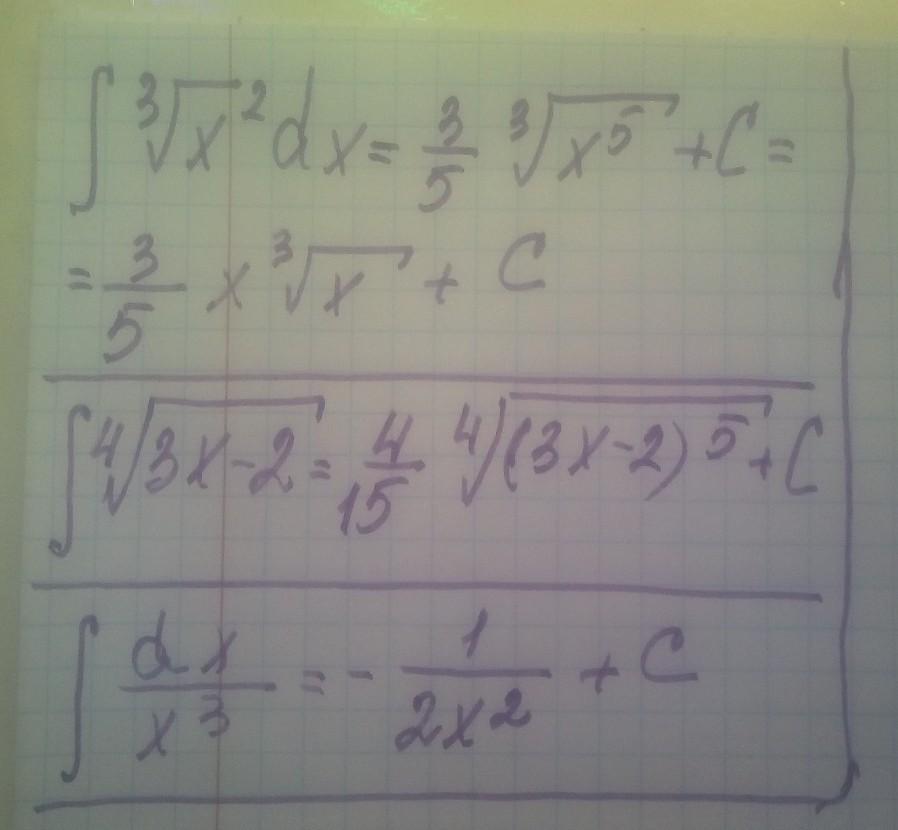 ∫ ∛x² dx = 3/5 ∛(x⁵) + C =
= 3/5 x ∛x + C
∫ ∜(3x-2) = 4/15 ∜((3x-2)⁵) + C
∫ dx/x³ = - 1/(2x²) + C